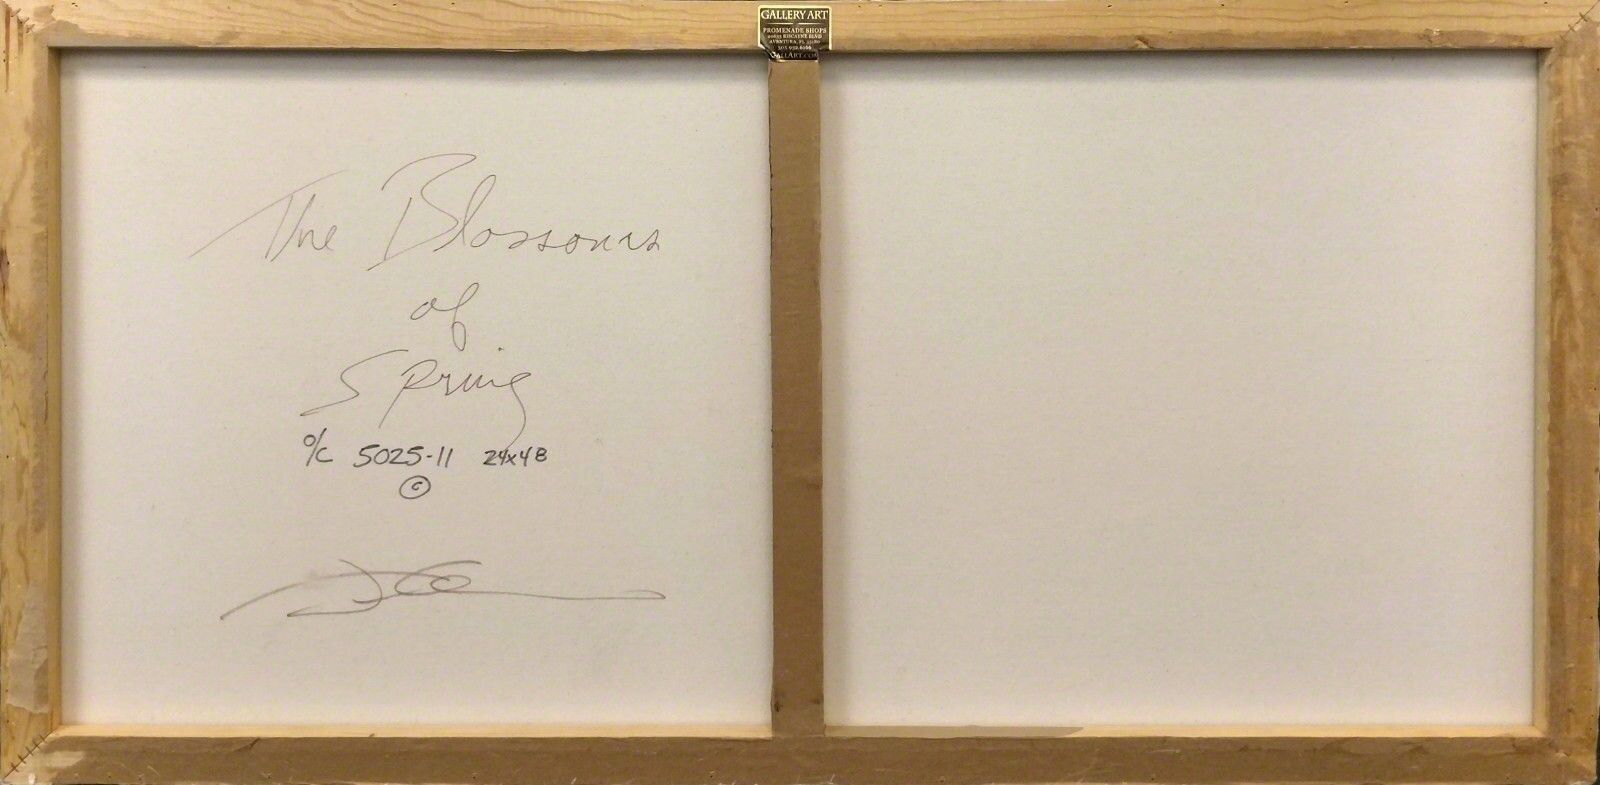 GALLERY ART
PROMENADE SHOPS
20633 BISCAYNE BLVD
AVENTURA, FL 33180
GALLART.COM
The Blossoms
of
Spring
o/c 5025-11 24x48
©